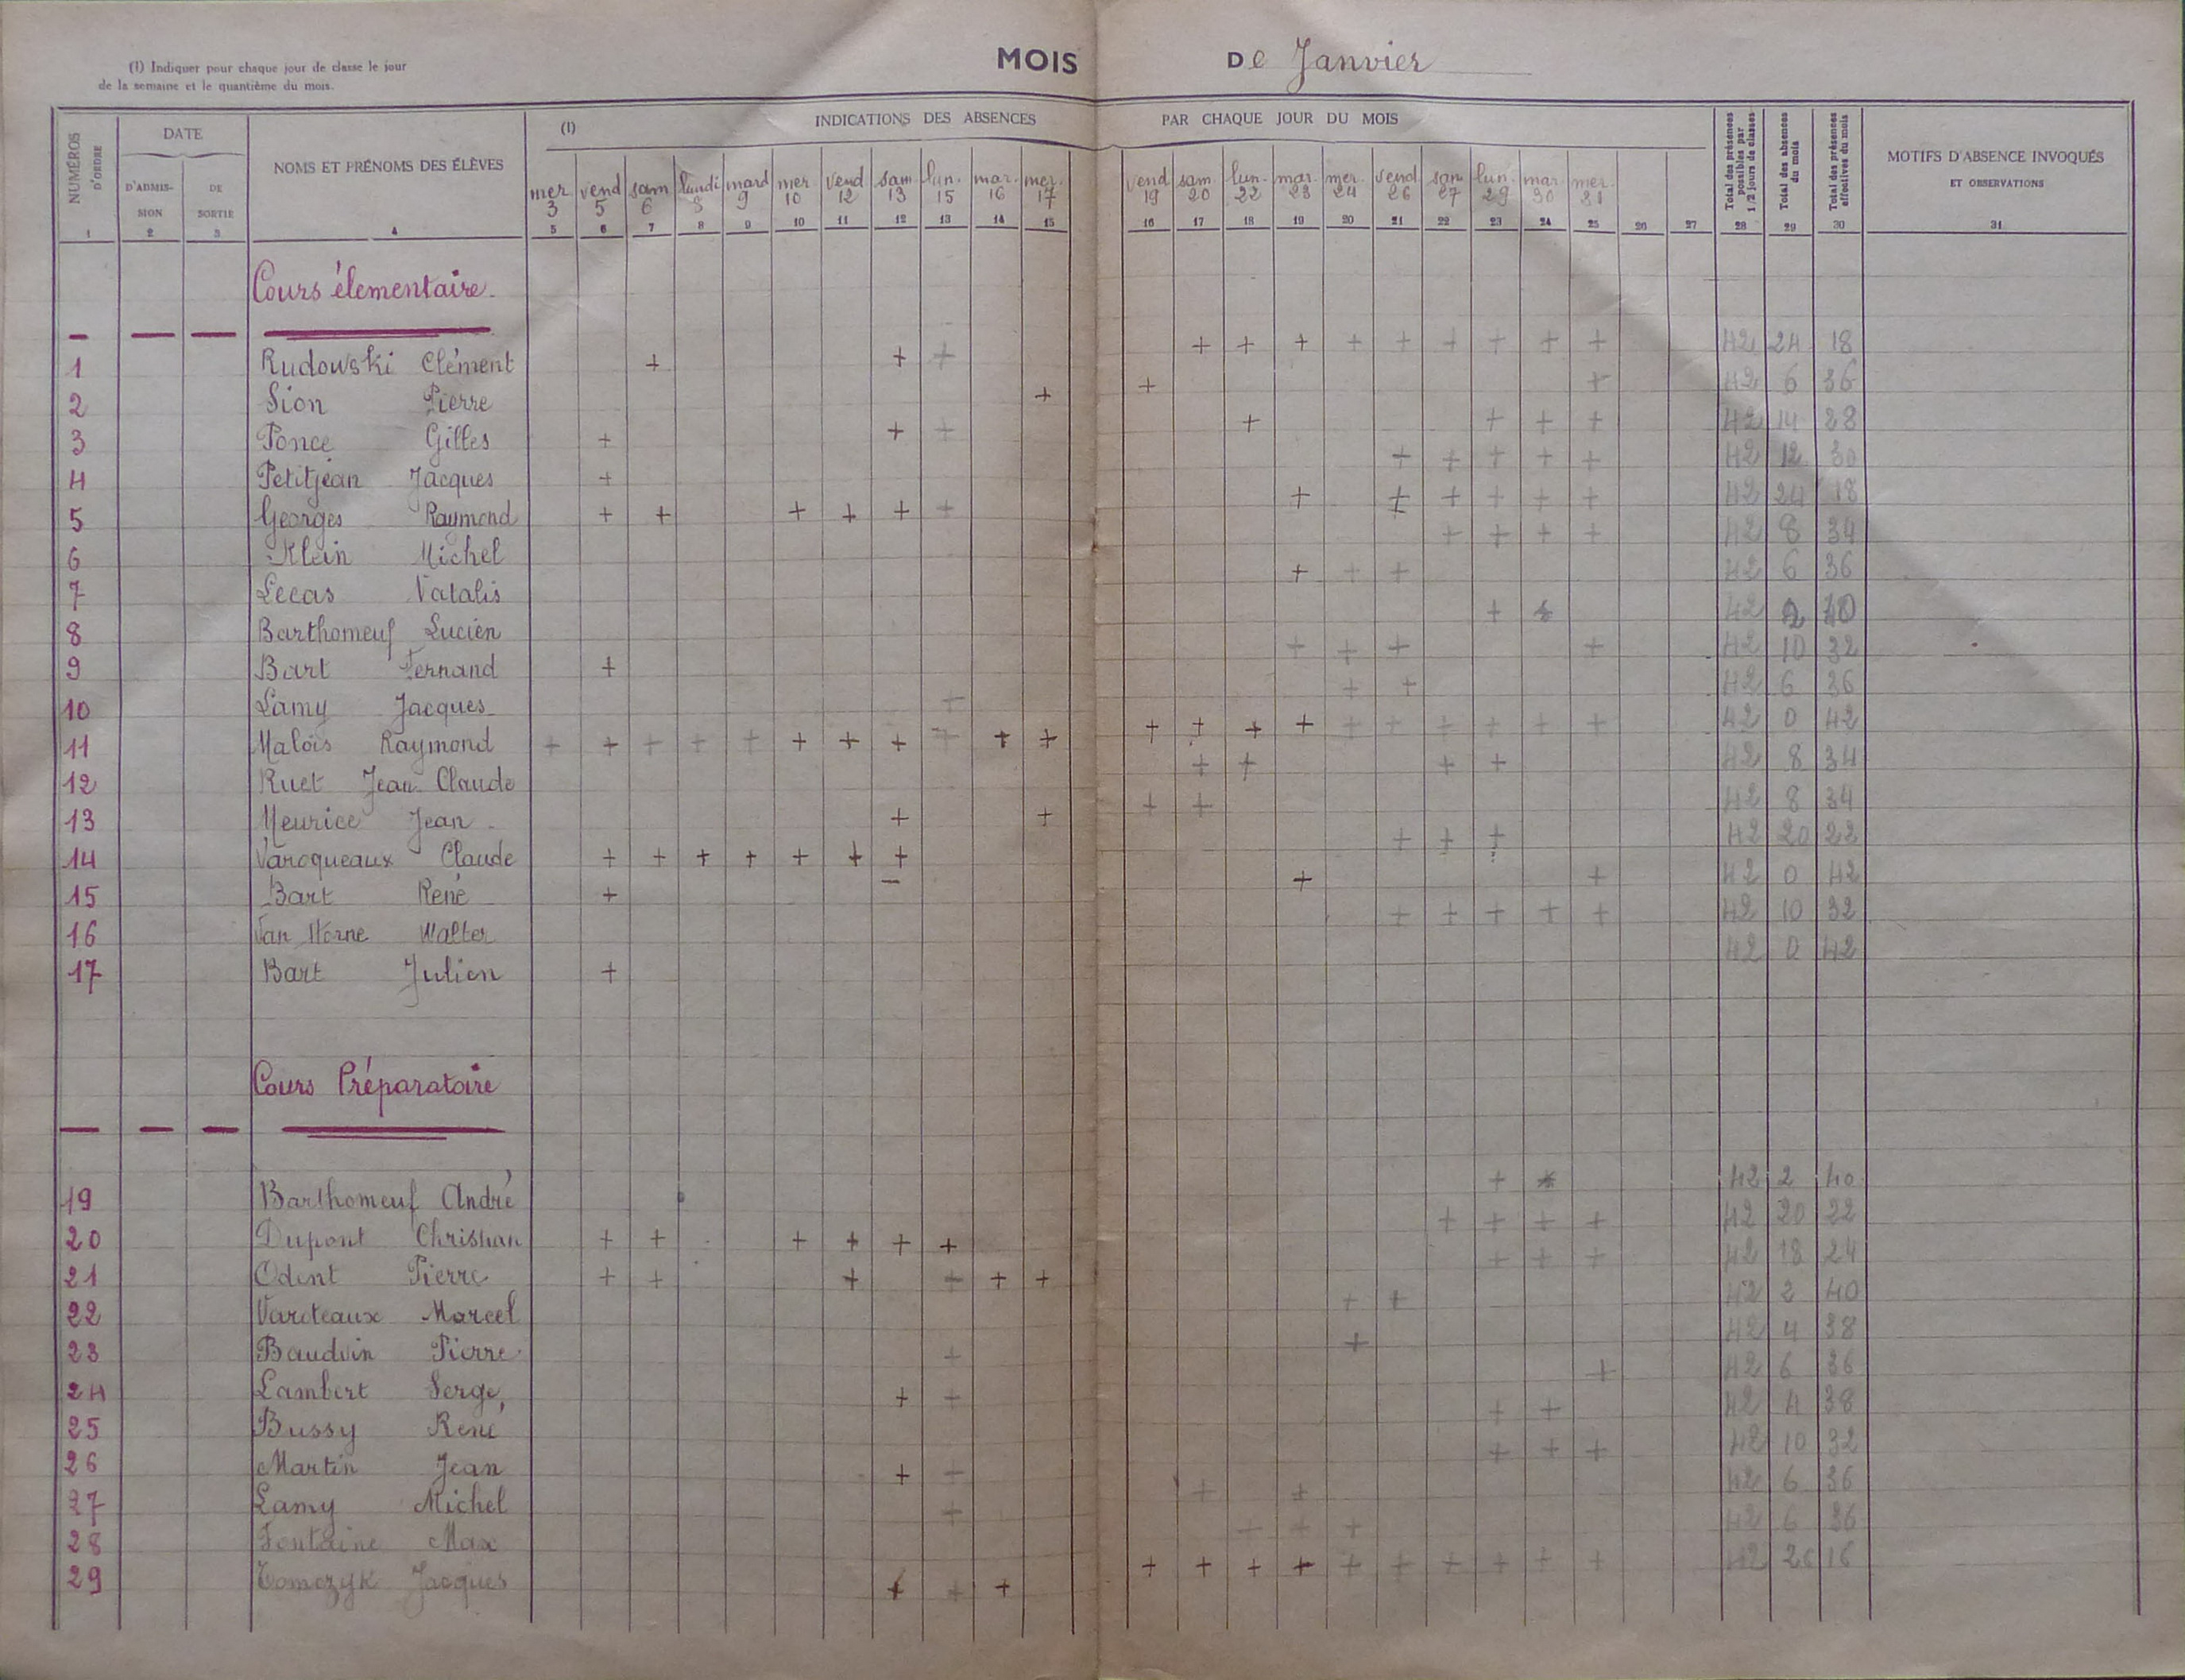 (1) Indiquer pour chaque jour de classe le jour
de la semaine et le quantième du mois.
MOIS De Janvier
NUMÉROS D'ORDRE
DATE
D'ADMISSION
DE SORTIE
NOMS ET PRÉNOMS DES ÉLÈVES
(1) INDICATIONS DES ABSENCES PAR CHAQUE JOUR DU MOIS
Total des présences possibles par 1/2 jours de classes
Total des absences du mois
Total des présences effectives du mois
MOTIFS D'ABSENCE INVOQUÉS
ET OBSERVATIONS
mer vend sam lundi mard mer vend sam lun. mar. mer. vend sam. lun. mar. mer. vend. sam lun. mar. mer.
3 5 6 8 9 10 12 13 15 16 17 19 20 22 23 24 26 27 29 30 31
1 2 3 4 5 6 7 8 9 10 11 12 13 14 15 16 17 18 19 20 21 22 23 24 25 26 27 28 29 30 31
Cours élementaire.
1 Rudowski Clément + + + + + + + + + + + + 42 24 18
2 Sion Pierre + + + 42 6 36
3 Ponce Gilles + + + + + + + 42 14 28
4 Petitjean Jacques + + + + + + 42 12 30
5 Georges Raymond + + + + + + + + + + + + 42 24 18
6 Klein Michel + + + + 42 8 34
7 Lecas Natalis + + + 42 6 36
8 Barthomeuf Lucien + + 42 2 40
9 Bart Fernand + + + + + 42 10 32
10 Lamy Jacques + + + 42 6 36
11 Malois Raymond + + + + + + + + + + + + + + + + + + + + + 42 0 42
12 Ruet Jean Claude + + + + 42 8 34
13 Meurice Jean + + + + 42 8 34
14 Varoqueaux Claude + + + + + + + + + + 42 20 22
15 Bart René + - + + 42 0 42
16 Van Horne Walter + + + + + 42 10 32
17 Bart Julien + 42 0 42
Cours Préparatoire
19 Barthomeuf André + + 42 2 40
20 Dupont Christian + + + + + + + + + + 42 20 22
21 Odent Pierre + + + + + + + + + 42 18 24
22 Varoteaux Marcel + + 42 2 40
23 Baudoin Pierre + + 42 4 38
24 Lambert Serge + + + 42 6 36
25 Bussy René + + 42 4 38
26 Martin Jean + + + + + 42 10 32
27 Lamy Michel + + + 42 6 36
28 Fontaine Max + + + 42 6 36
29 Tomczyk Jacques + + + + + + + + + + + + + 42 26 16